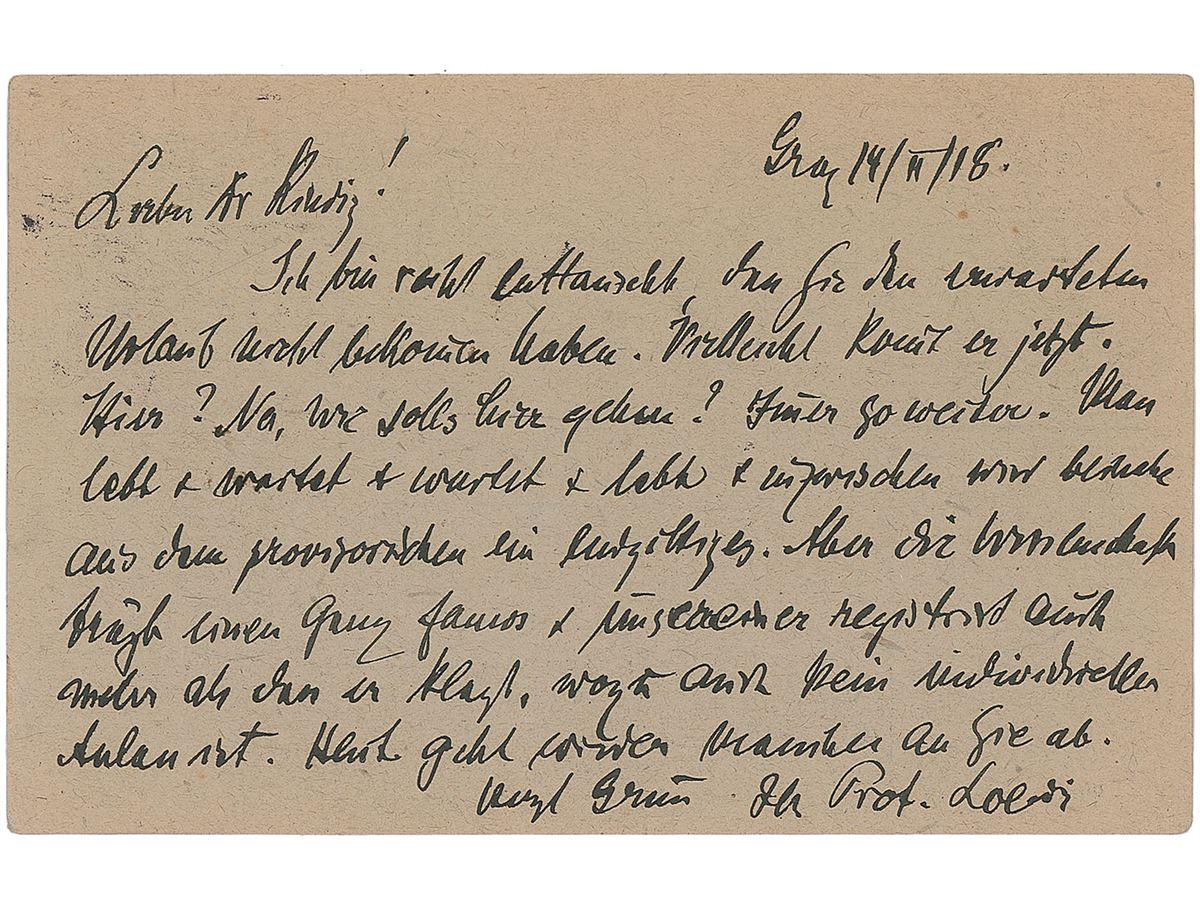 Graz 14/II/18.
Lieber Dr
Ich bin recht enttäuscht, dass Sie den erwarteten
Urlaub nicht bekommen haben. Vielleicht kommt er jetzt.
Hier? Na, wie solls hier gehen? Immer so weiter. Man
lebt + wartet + wartet + lebt + inzwischen wird beinahe
aus dem provisorischen ein endgiltiges. Aber die
trägt einen ganz famos + unsereiner registrirt auch
mehr als dass er klagt, wozu auch kein individueller
Anlass ist. Heute geht wieder an Sie ab.
Herzl Gruss Ihr Prof. Loewi